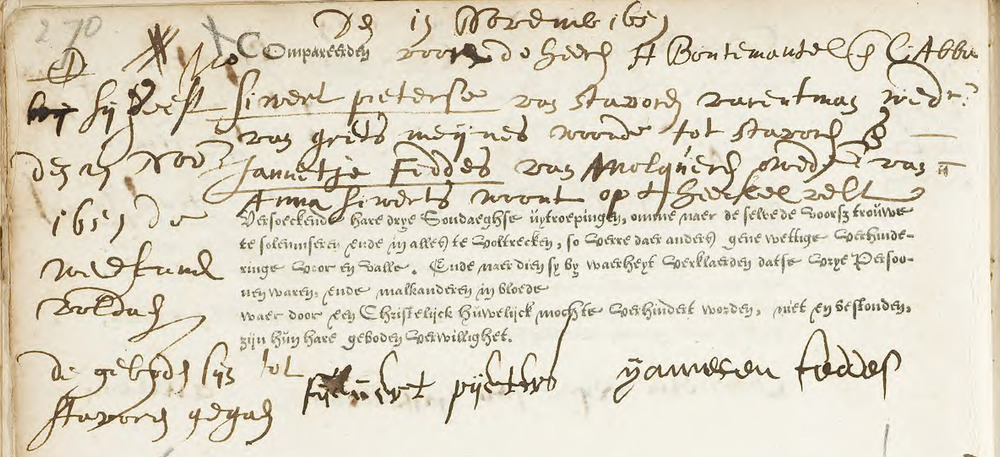 270
De 15 Novemb 1651
Compareerden voor de heeren H Bontemantel en C: Abba
Siwert pieterse van stavoren varentman wedr
van griets meijnes woonde tot stavoren &
Jannetje Feddes van Molqueren wedue van
Anna siwerts woont op t heerkevelt
Versoeckende hare drye Sondaeghse uytroepingen, omme naer de selve de voorsz trouwe
te solemniseren ende in alles te voltrecken, so verre daer anders gene wettige verhinde-
ringe voor en valle. Ende naer dien sy by waerheyt verklaerden datse vrye Persoo-
nen waren, ende malkanderen in bloede
waer door een Christelijck huwelijck mochte verhindert worden, niet en bestonden,
zijn hun hare geboden verwillighet.
hij heeft
den 15 Nov
1651 de
weeskamer
voldaen
de geboden sijn tot
stavoren gegaen
sijuert pijeters
yanneken feddes